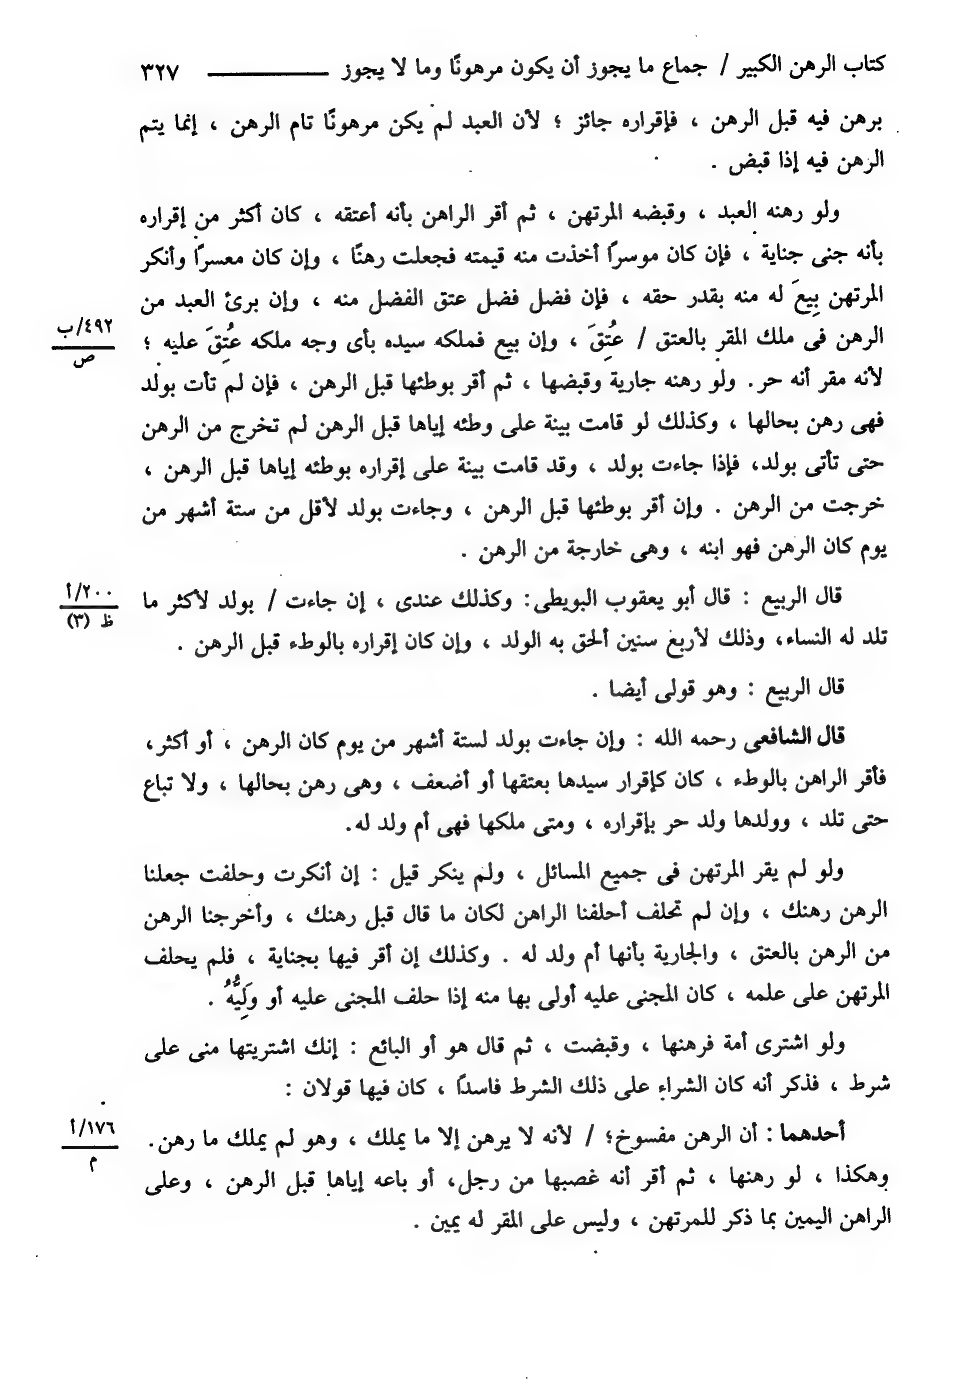 كتاب الرهن الكبير / جماع ما يجوز أن يكون مرهونًا وما لا يجوز ٣٢٧
برهن فيه قبل الرهن ، فإقراره جائز ؛ لأن العبد لم يكن مرهونًا تام الرهن ، إنما يتم
الرهن فيه إذا قبض .
ولو رهنه العبد ، وقبضه المرتهن ، ثم أقر الراهن بأنه أعتقه ، كان أكثر من إقراره
بأنه جنى جناية ، فإن كان موسرًا أخذت منه قيمته فجعلت رهنًا ، وإن كان معسرًا وأنكر
المرتهن بِيعَ له منه بقدر حقه ، فإن فضل فضل عتق الفضل منه ، وإن برئ العبد من
الرهن فى ملك المقر بالعتق / عُتِقَ ، وإن بيع فملكه سيده بأى وجه ملكه عُتِقَ عليه ؛
٤٩٢/ب
ص
لأنه مقر أنه حر. ولو رهنه جارية وقبضها ، ثم أقر بوطئها قبل الرهن ، فإن لم تأت بولد
فهى رهن بحالها ، وكذلك لو قامت بينة على وطئه إياها قبل الرهن لم تخرج من الرهن
حتى تأتى بولد، فإذا جاءت بولد ، وقد قامت بينة على إقراره بوطئه إياها قبل الرهن ،
خرجت من الرهن . وإن أقر بوطئها قبل الرهن ، وجاءت بولد لأقل من ستة أشهر من
يوم كان الرهن فهو ابنه ، وهى خارجة من الرهن .
قال الربيع : قال أبو يعقوب البويطى: وكذلك عندى ، إن جاءت / بولد لأكثر ما
٢٠٠/أ
ظ (٣)
تلد له النساء، وذلك لأربع سنين ألحق به الولد ، وإن كان إقراره بالوطء قبل الرهن .
قال الربيع : وهو قولى أيضا .
قال الشافعى رحمه الله : وإن جاءت بولد لستة أشهر من يوم كان الرهن ، أو أكثر،
فأقر الراهن بالوطء ، كان كإقرار سيدها بعتقها أو أضعف ، وهى رهن بحالها ، ولا تباع
حتى تلد ، وولدها ولد حر بإقراره ، ومتى ملكها فهى أم ولد له.
ولو لم يقر المرتهن فى جميع المسائل ، ولم ينكر قيل : إن أنكرت وحلفت جعلنا
الرهن رهنك ، وإن لم تحلف أحلفنا الراهن لكان ما قال قبل رهنك ، وأخرجنا الرهن
من الرهن بالعتق ، والجارية بأنها أم ولد له . وكذلك إن أقر فيها بجناية ، فلم يحلف
المرتهن على علمه ، كان المجنى عليه أولى بها منه إذا حلف المجنى عليه أو وَلِيُّهُ .
ولو اشترى أمة فرهنها ، وقبضت ، ثم قال هو أو البائع : إنك اشتريتها منى على
شرط ، فذكر أنه كان الشراء على ذلك الشرط فاسدًا ، كان فيها قولان :
أحدهما : أن الرهن مفسوخ؛ / لأنه لا يرهن إلا ما يملك ، وهو لم يملك ما رهن.
١٧٦/أ
م
وهكذا ، لو رهنها ، ثم أقر أنه غصبها من رجل، أو باعه إياها قبل الرهن ، وعلى
الراهن اليمين بما ذكر للمرتهن ، وليس على المقر له يمين .